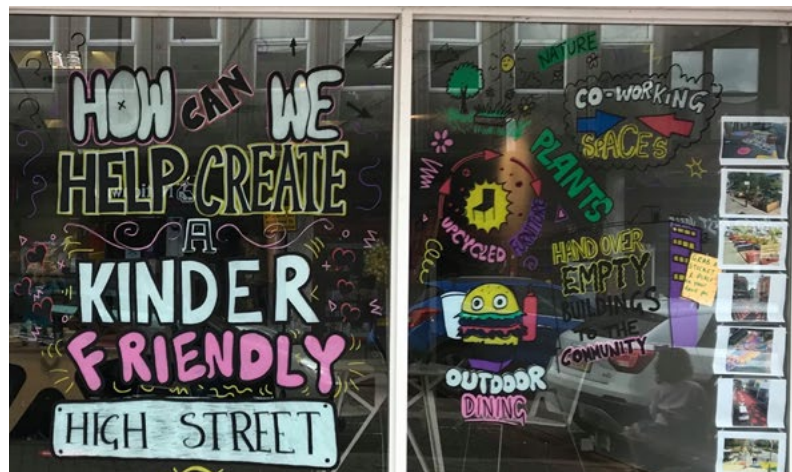 HOW CAN WE
HELP CREATE
A
KINDER
FRIENDLY
HIGH STREET
NATURE
CO-WORKING
SPACES
PLANTS
UPCYCLED FURNITURE
HAND OVER
EMPTY
BUILDINGS
TO THE
COMMUNITY
OUTDOOR
DINING